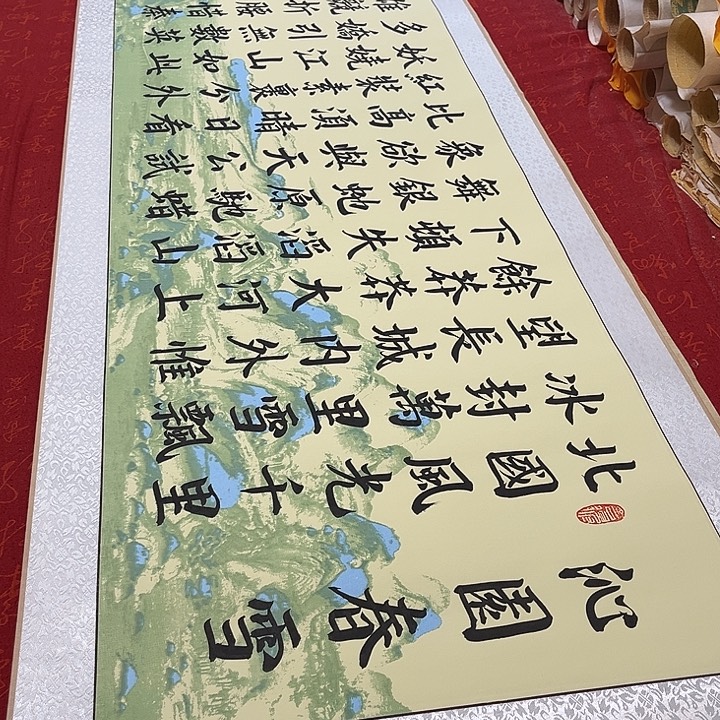 沁園春雪
北國風光千里
冰封萬里雪飄
望長城内外惟
餘莽莽大河上
下頓失滔滔山
舞銀蛇原馳蜡
象欲與天公試
比高須晴日看
紅裝素裹分外
妖嬈江山如此
多嬌引無數英
競折腰惜秦